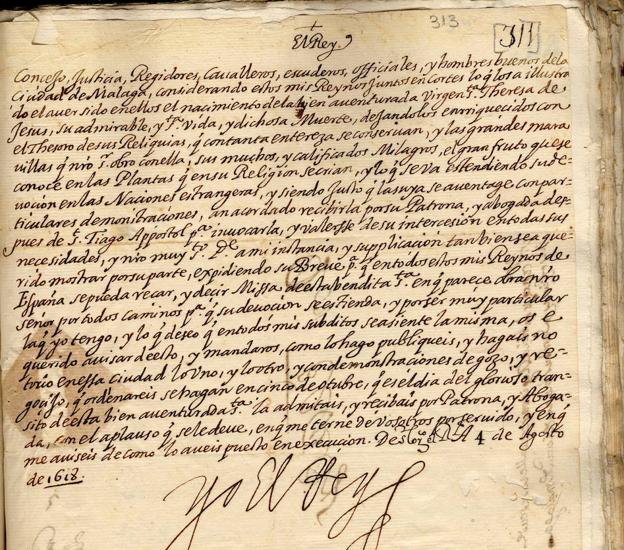 313
311
El Rey.
Concejo, Justicia, Regidores, Cavalleros, escuderos, officiales, y hombres buenos dela
Ciudad de Malaga, considerando estos mis Reynos Juntos en Cortes lo q̃ los a illustra
do el aver sido enellos el nacimiento dela bien aventurada Virgen S.ᵗ Theresa de
Jesus, su admirable, y S.ᵗᵃ Vida, y dichosa Muerte, dejandolos enrriquecidos con
el Thesoro de sus Reliquias, q̃ con tanta entereza se conservan, y las grandes mara
villas q̃ nr̃o S.ʳ obro con ella, sus muchos, y calificados Milagros, el gran fruto que se
conoce en las Plantas q̃ en su Religion se crian, y lo q̃ se va estendiendo su de-
vocion en las Naciones estrangeras, y siendo Justo q̃ la suya se aventage con par-
ticulares demonstraciones, an acordado recibirla por su Patrona, y abogada des-
pues de S.ᵗ Tiago Appostol p.ᵃ invocarla, y valerse de su intercesion en todas sus
necesidades, y nr̃o muy S.ᵗᵒ P.ᵉ a mi instancia, y supplicacion tanbien se a que-
rido mostrar por su parte, expidiendo su Breve p.ᵃ q̃ en todos estos mis Reynos de
España se pueda reçar, y decir Missa de esta bendita S.ᵗᵃ en q̃ parece abra nr̃o
señor por todos caminos p.ᵃ q̃ su devocion se estienda, y por ser muy particular
la q̃ yo tengo, y lo q̃ deseo q̃ en todos mis subditos se asiente la misma, os e
querido avisar de esto, y mandaros, como lo hago publiqueis, y hagais no
torio en essa Ciudad lo Uno, y lo otro, y con demonstraciones de goço, y re-
goçijo, q̃ ordenareis se hagan en cinco de otubre, q̃ es el dia del glorioso tran-
sito de esta bien aventurada S.ᵗᵃ la admitais, y recibais por Patrona, y Aboga-
da, con el aplauso q̃ se le deve, en q̃ me terne de Vosotros por servido, y en q̃
me aviseis de como lo aveis puesto en execucion. De S. Lor.ᶜᵒ el R.ˡ A 4 de Agosto
de 1618.
yo El Rey